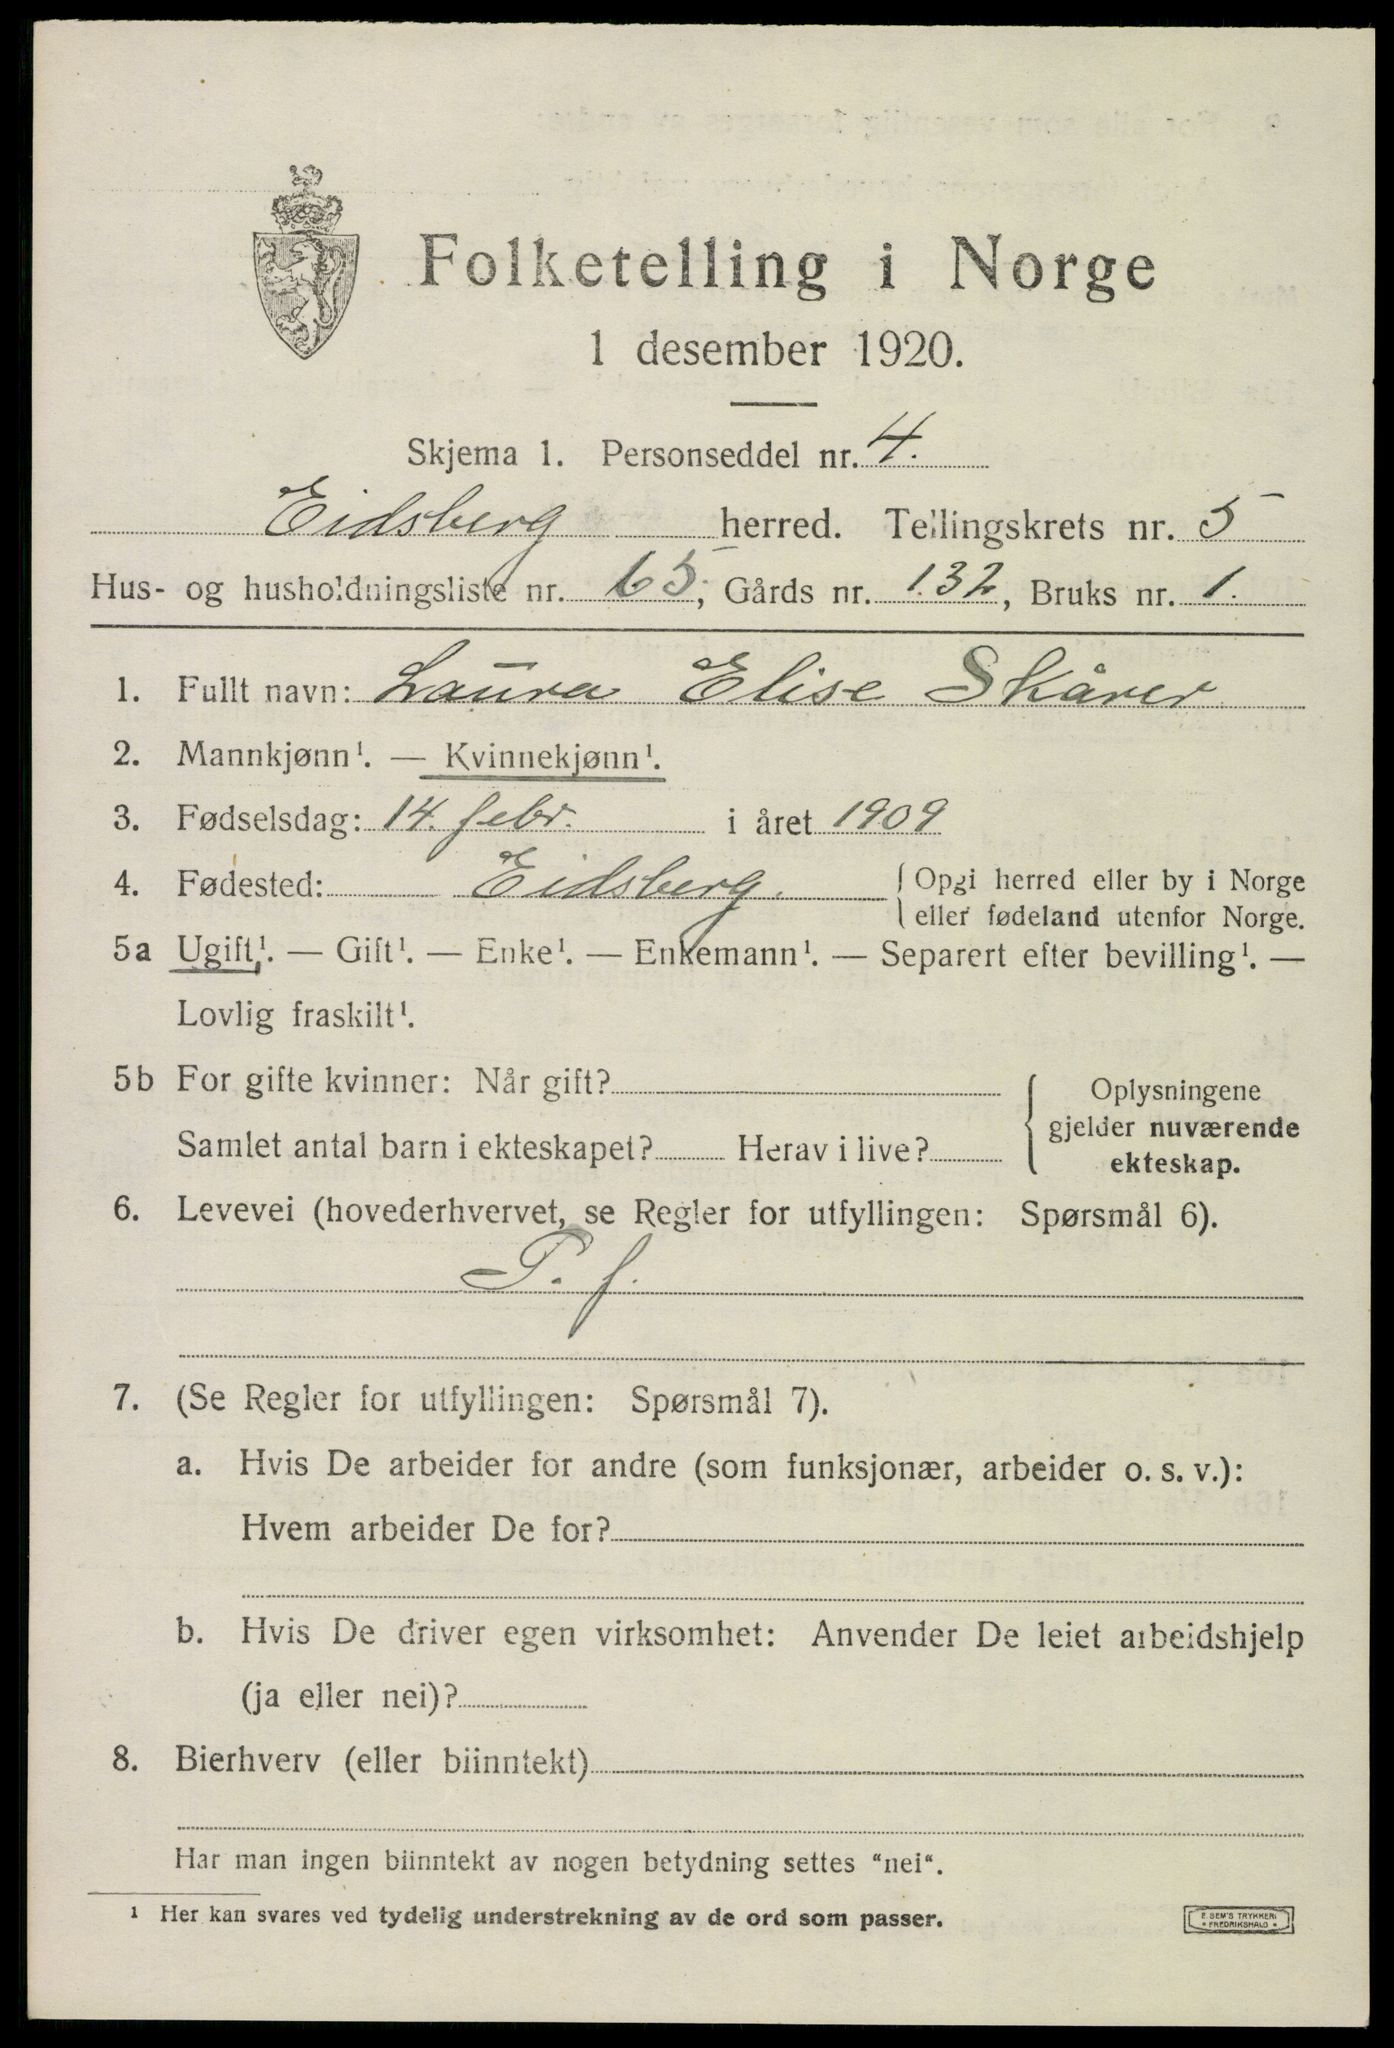 Folketelling i Norge
1 desember 1920.
Skjema 1. Personseddel nr. 4.
Eidsberg herred. Tellingskrets nr. 5
Hus- og husholdningsliste nr. 65, Gårds nr. 132, Bruks nr. 1.
1. Fullt navn: Laura Elise Skårer
2. Mannkjønn¹. — Kvinnekjønn¹.
3. Fødselsdag: 14. febr. i året 1909
4. Fødested: Eidsberg. { Opgi herred eller by i Norge
eller fødeland utenfor Norge.
5a Ugift¹. — Gift¹. — Enke¹. — Enkemann¹. — Separert efter bevilling¹. —
Lovlig fraskilt¹.
5b For gifte kvinner: Når gift?
Samlet antal barn i ekteskapet? Herav i live?
{ Oplysningene
gjelder nuværende
ekteskap.
6. Levevei (hovederhvervet, se Regler for utfyllingen: Spørsmål 6).
P. f.
7. (Se Regler for utfyllingen: Spørsmål 7).
a. Hvis De arbeider for andre (som funksjonær, arbeider o. s. v.):
Hvem arbeider De for?
b. Hvis De driver egen virksomhet: Anvender De leiet arbeidshjelp
(ja eller nei)?
8. Bierhverv (eller biinntekt)
Har man ingen biinntekt av nogen betydning settes "nei".
¹ Her kan svares ved tydelig understrekning av de ord som passer.
E. SEM'S TRYKKERI
* FREDRIKSHALD *